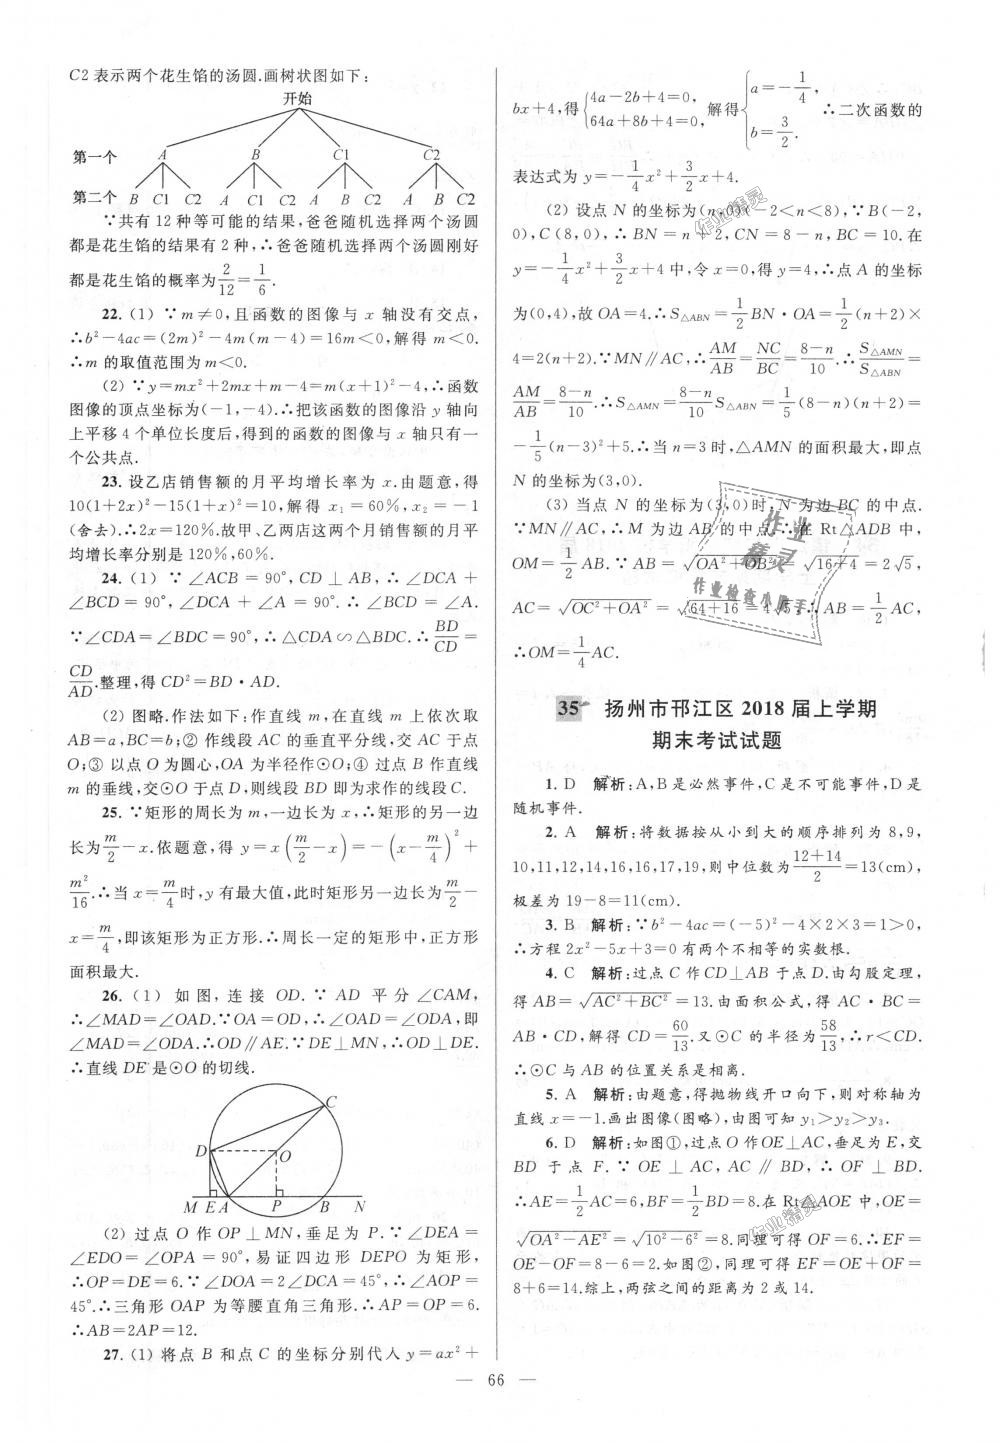 C2表示两个花生馅的汤圆.画树状图如下:
开始
第一个 A B C1 C2
第二个 B C1 C2 A C1 C2 A B C2 A B C2
∵共有12种等可能的结果,爸爸随机选择两个汤圆
都是花生馅的结果有2种,∴爸爸随机选择两个汤圆刚好
都是花生馅的概率为2/12=1/6.
22.(1) ∵m≠0,且函数的图像与x轴没有交点,
∴b²-4ac=(2m)²-4m(m-4)=16m<0,解得m<0.
∴m的取值范围为m<0.
(2) ∵y=mx²+2mx+m-4=m(x+1)²-4,∴函数
图像的顶点坐标为(-1,-4).∴把该函数的图像沿y轴向
上平移4个单位长度后,得到的函数的图像与x轴只有一
个公共点.
23. 设乙店销售额的月平均增长率为x.由题意,得
10(1+2x)²-15(1+x)²=10,解得x₁=60%,x₂=-1
(舍去).∴2x=120%.故甲、乙两店这两个月销售额的月平
均增长率分别是120%,60%.
24.(1) ∵∠ACB=90°,CD⊥AB,∴∠DCA+
∠BCD=90°,∠DCA+∠A=90°.∴∠BCD=∠A.
∵∠CDA=∠BDC=90°,∴△CDA∽△BDC.∴BD/CD=
CD/AD.整理,得CD²=BD·AD.
(2) 图略.作法如下:作直线m,在直线m上依次取
AB=a,BC=b;② 作线段AC的垂直平分线,交AC于点
O;③ 以点O为圆心,OA为半径作⊙O;④ 过点B作直线
m的垂线,交⊙O于点D,则线段BD即为求作的线段C.
25. ∵矩形的周长为m,一边长为x,∴矩形的另一边
长为m/2-x.依题意,得y=x(m/2-x)=-(x-m/4)²+
m²/16.∴当x=m/4时,y有最大值,此时矩形另一边长为m/2-
x=m/4,即该矩形为正方形.∴周长一定的矩形中,正方形
面积最大.
26.(1) 如图,连接OD.∵AD平分∠CAM,
∴∠MAD=∠OAD.∵OA=OD,∴∠OAD=∠ODA,即
∠MAD=∠ODA.∴OD∥AE.∵DE⊥MN,∴OD⊥DE.
∴直线DE是⊙O的切线.
C
D O
M E A P B N
(2) 过点O作OP⊥MN,垂足为P.∵∠DEA=
∠EDO=∠OPA=90°,易证四边形DEPO为矩形,
∴OP=DE=6.∵∠DOA=2∠DCA=45°,∴∠AOP=
45°.∴三角形OAP为等腰直角三角形.∴AP=OP=6.
∴AB=2AP=12.
27.(1) 将点B和点C的坐标分别代人y=ax²+
bx+4,得{4a-2b+4=0, 64a+8b+4=0,解得{a=-1/4, b=3/2. ∴二次函数的
表达式为y=-1/4x²+3/2x+4.
(2) 设点N的坐标为(n,0)(-2<n<8),∵B(-2,
0),C(8,0),∴BN=n+2,CN=8-n,BC=10.在
y=-1/4x²+3/2x+4中,令x=0,得y=4,∴点A的坐标
为(0,4),故OA=4.∴S△ABN=1/2BN·OA=1/2(n+2)×
4=2(n+2).∵MN∥AC,∴AM/AB=NC/BC=8-n/10.∴S△AMN/S△ABN=
AM/AB=8-n/10.∴S△AMN=8-n/10S△ABN=1/5(8-n)(n+2)=
-1/5(n-3)²+5.∴当n=3时,△AMN的面积最大,即点
N的坐标为(3,0).
(3) 当点N的坐标为(3,0)时,N为边BC的中点.
∵MN∥AC,∴M为边AB的中点.∴在Rt△ADB中,
OM=1/2AB.∵AB=√OA²+OB²=√16+4=2√5,
AC=√OC²+OA²=√64+16=4√5,∴AB=1/2AC,
∴OM=1/4AC.
35 扬州市邗江区2018届上学期
期末考试试题
1. D 解析:A,B是必然事件,C是不可能事件,D是
随机事件.
2. A 解析:将数据按从小到大的顺序排列为8,9,
10,11,12,14,16,16,17,19,则中位数为12+14/2=13(cm),
极差为19-8=11(cm).
3. B 解析:∵b²-4ac=(-5)²-4×2×3=1>0,
∴方程2x²-5x+3=0有两个不相等的实数根.
4. C 解析:过点C作CD⊥AB于点D.由勾股定理,
得AB=√AC²+BC²=13.由面积公式,得AC·BC=
AB·CD,解得CD=60/13.又⊙C的半径为58/13,∴r<CD.
∴⊙C与AB的位置关系是相离.
5. A 解析:由题意,得抛物线开口向下,则对称轴为
直线x=-1.画出图像(图略),由图可知y₁>y₂>y₃.
6. D 解析:如图①,过点O作OE⊥AC,垂足为E,交
BD于点F.∵OE⊥AC,AC∥BD,∴OF⊥BD.
∴AE=1/2AC=6,BF=1/2BD=8.在Rt△AOE中,OE=
√OA²-AE²=√10²-6²=8.同理可得OF=6.∴EF=
OE-OF=8-6=2.如图②,同理可得EF=OE+OF=
8+6=14.综上,两弦之间的距离为2或14.
作业精灵
作业
精灵
作业检查小助手
作业精灵
— 66 —